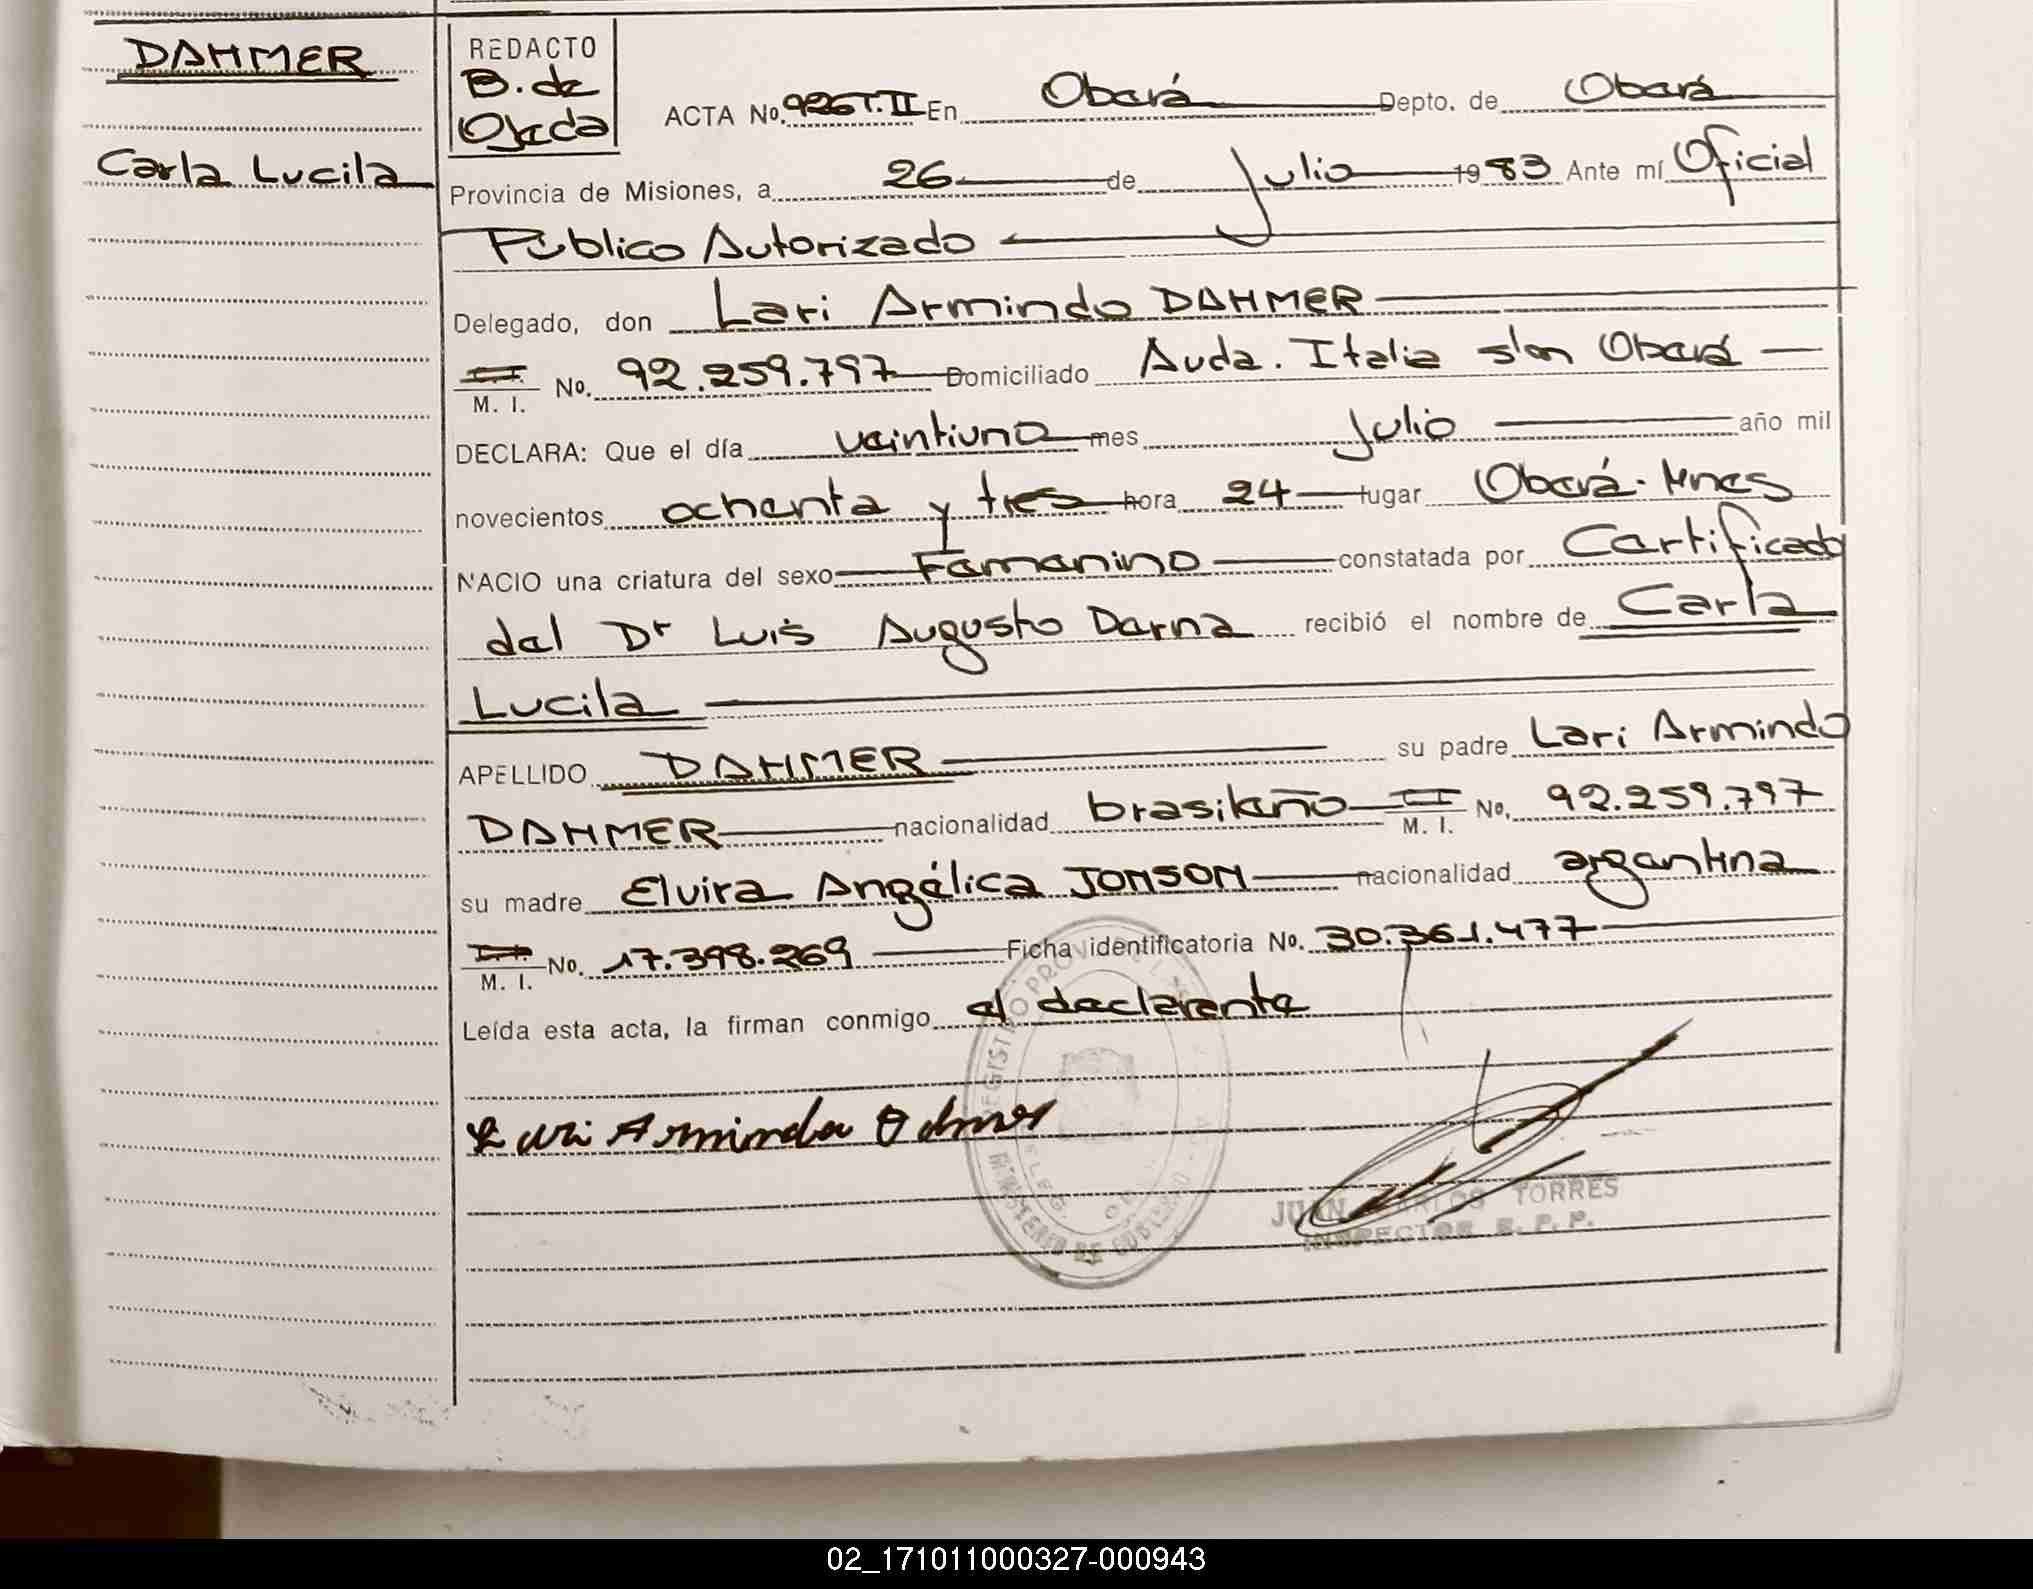 DAHMER
Carla Lucila
REDACTO
B. de
Ojeda
ACTA No. 926 T. II En Oberá Depto. de Oberá
Provincia de Misiones, a 26 de Julio 1983 Ante mí Oficial
Público Autorizado
Delegado, don Lari Armindo DAHMER
M. I. No. 92.259.797 Domiciliado Avda. Italia s/n Oberá
DECLARA: Que el día veintiuno mes julio año mil
novecientos ochenta y tres hora 24 lugar Oberá - Mnes
NACIO una criatura del sexo Femenino constatada por Certificado
del Dr Luis Augusto Darna recibió el nombre de Carla
Lucila
APELLIDO DAHMER su padre Lari Armindo
DAHMER nacionalidad brasileño M. I. No. 92.259.797
su madre Elvira Angélica JONSON nacionalidad argentina
M. I. No. 17.398.269 Ficha identificatoria No. 30.361.477
Leída esta acta, la firman conmigo el declarente
Lari Armindo Dahmer
REGISTRO PROVINCIAL
MINISTERIO DE GOBIERNO
JUAN CARLOS TORRES
INSPECTOR R. P. P.
02_171011000327-000943